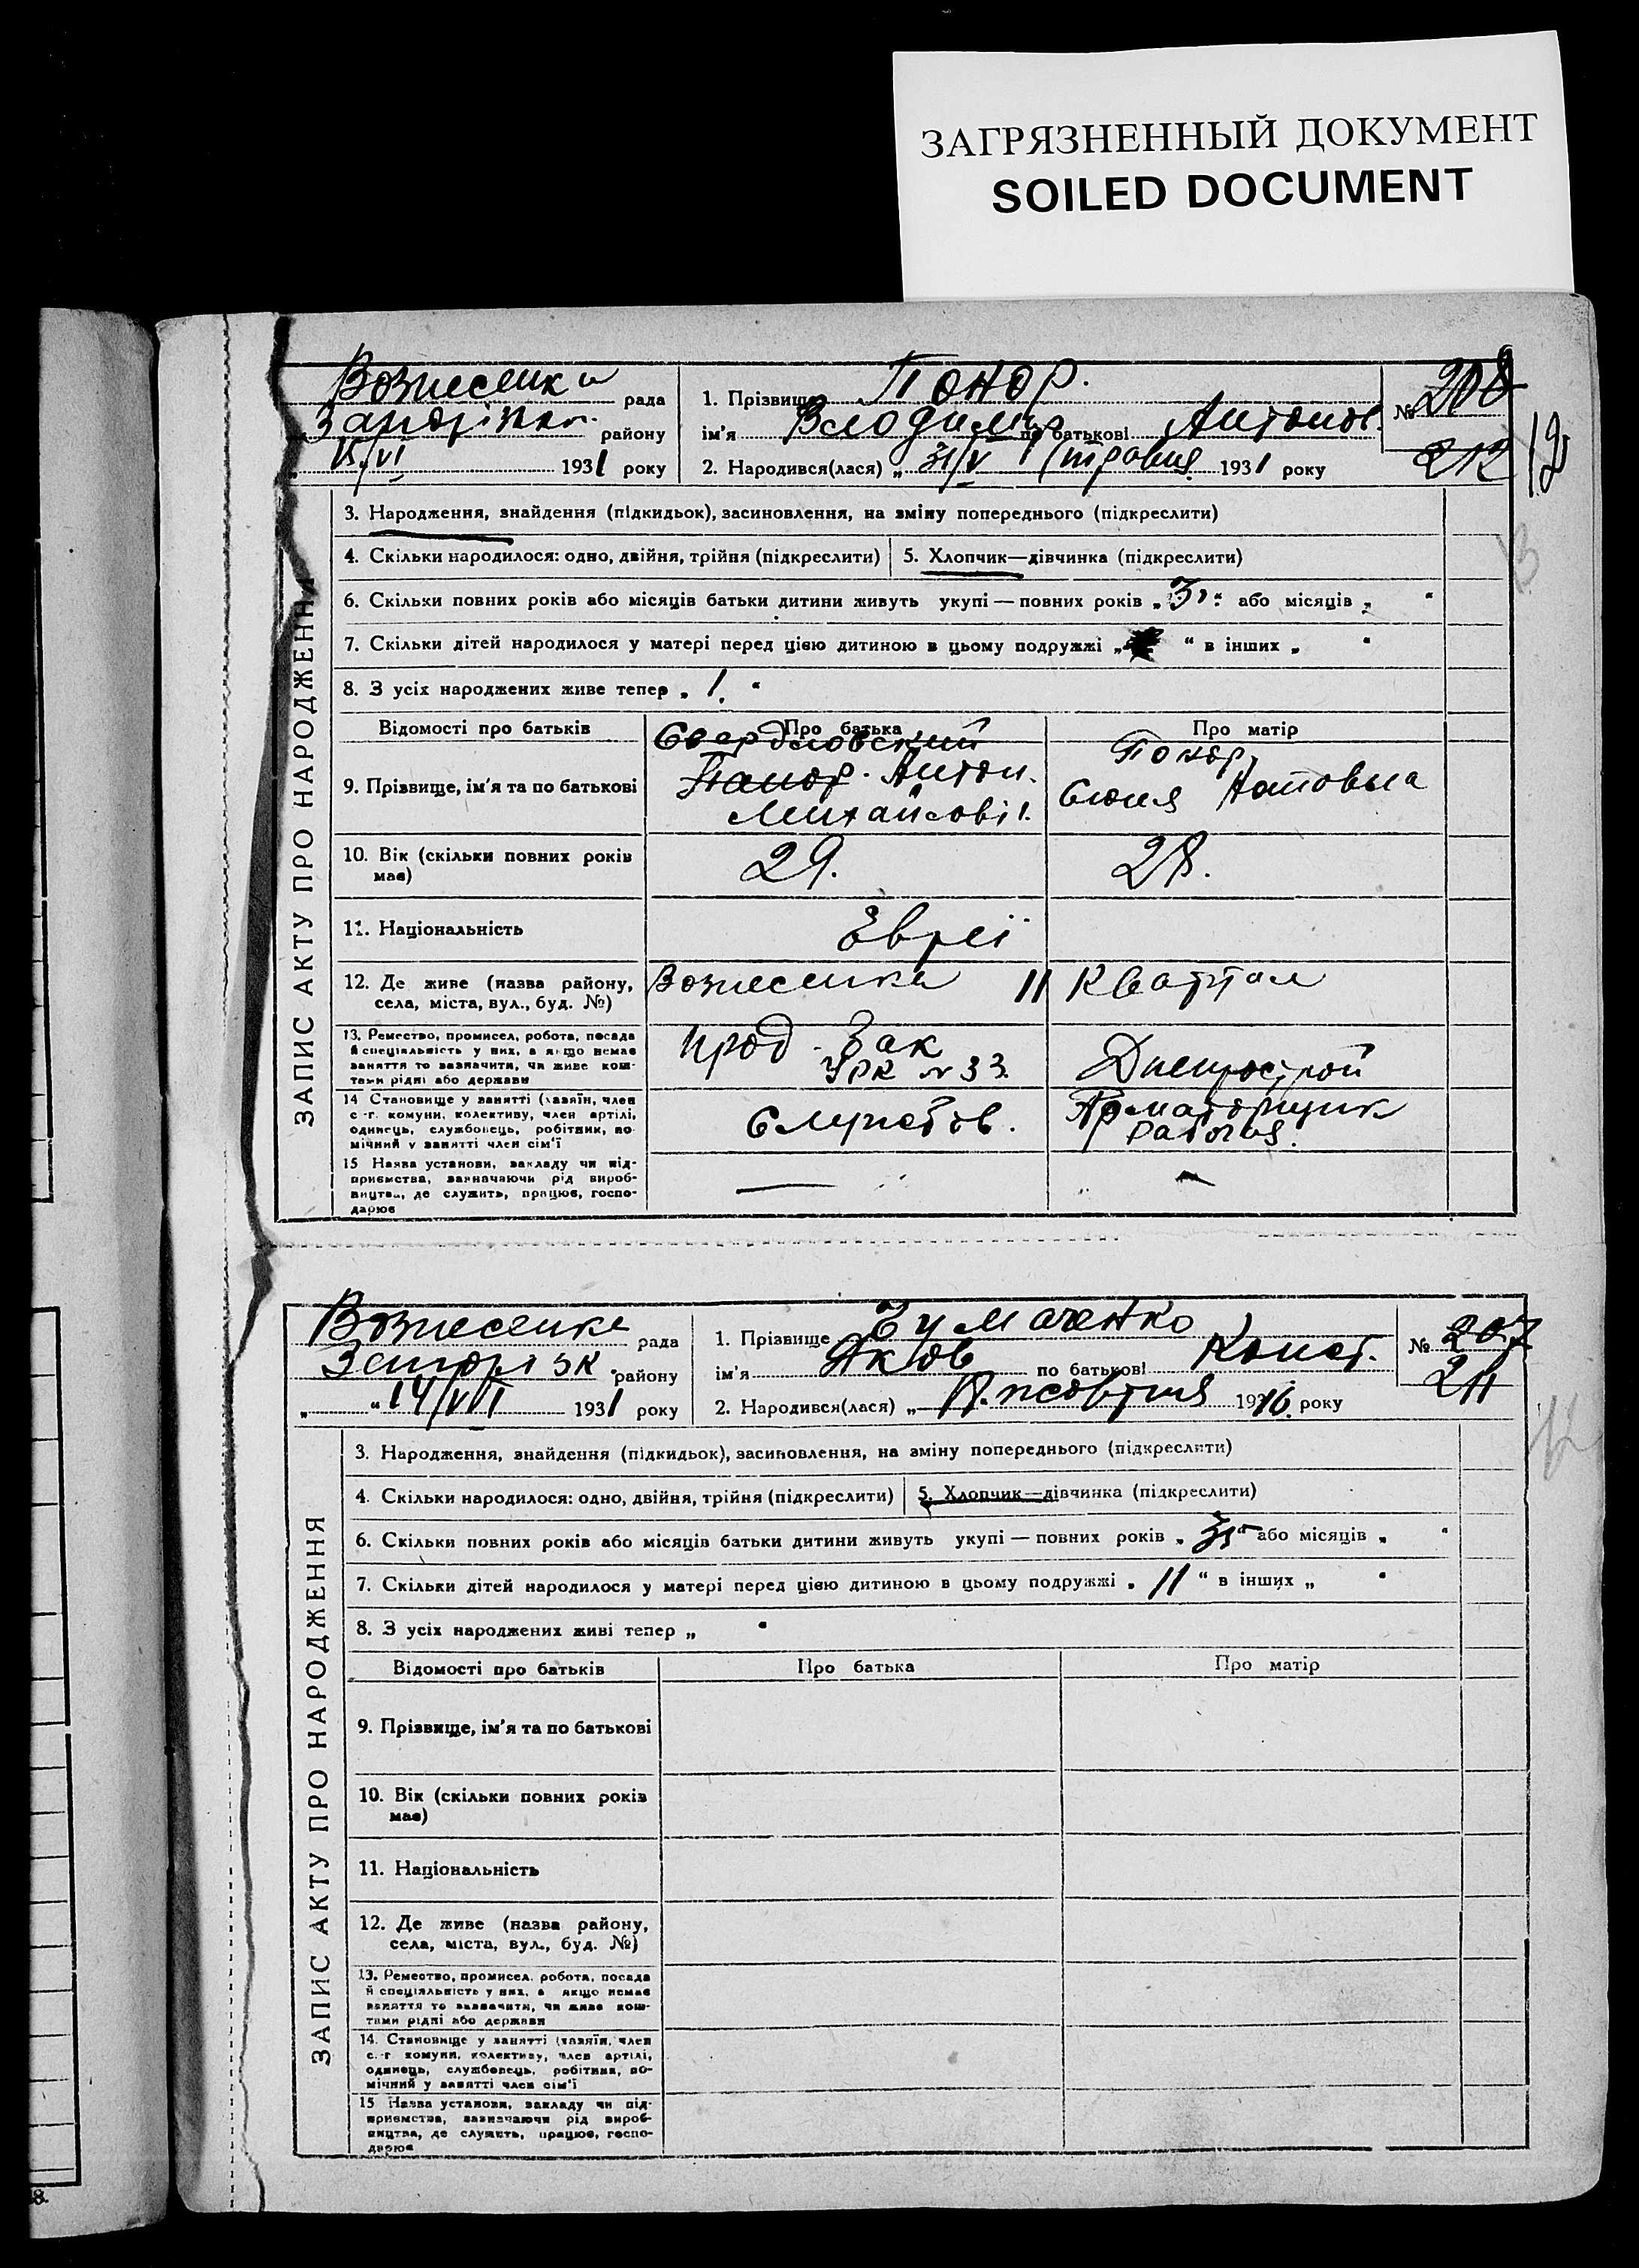 ЗАГРЯЗНЕННЫЙ ДОКУМЕНТ
SOILED DOCUMENT
ЗАПИС АКТУ ПРО НАРОДЖЕННЯ
Вознесенка рада
району
" 15/VI 1931 року
1. Прізвище Понор.
ім'я Володимир по батькові Антонов.
2. Народився(лася) „ 31/V травня 1931 року
№ 208
212
12
3. Народження, знайдення (підкидьок), засиновлення, на зміну попереднього (підкреслити)
4. Скільки народилося: одно, двійня, трійня (підкреслити)
5. Хлопчик—дівчинка (підкреслити)
6. Скільки повних років або місяців батьки дитини живуть укупі — повних років „ 3 " або місяців „ "
7. Скільки дітей народилося у матері перед цією дитиною в цьому подружжі „ " в інших „ "
8. З усіх народжених живе тепер „ 1. "
Відомості про батьків
Про батька
Про матір
9. Прізвище, ім'я та по батькові
Свердловский
Понор. Антон.
Михайлові
Понор,
10. Вік (скільки повних років має)
29.
28.
11. Національність
Євреї
12. Де живе (назва району, села, міста, вул., буд. №)
Вознесенка 11 Квартал
13. Ремество, промисел, робота, посада й спеціяльність у них, а якщо немає заняття то зазначити, чи живе коштами рідні або держави
прод. Зак
№ 33.
Днепрострой
14 Становище у занятті (хазяїн, член с.-г. комуни, колективу, член артілі, одинець, службовець, робітник, помічний у занятті член сім'ї
Служебов.
Арматорщик
рабочая.
15 Назва установи, закладу чи підприємства, зазначаючи рід виробництва, де служить, працює, господарює
ЗАПИС АКТУ ПРО НАРОДЖЕННЯ
Вознесенка рада
району
„ " 14/VII 1931 року
1. Прізвище Чумаченко
ім'я Яков по батькові Конст.
2. Народився(лася) „ жовтня 1916 року
№ 207
211
12
3. Народження, знайдення (підкидьок), засиновлення, на зміну попереднього (підкреслити)
4. Скільки народилося: одно, двійня, трійня (підкреслити)
5. Хлопчик—дівчинка (підкреслити)
6. Скільки повних років або місяців батьки дитини живуть укупі — повних років „ 35 " або місяців „ "
7. Скільки дітей народилося у матері перед цією дитиною в цьому подружжі „ 11 " в інших „ "
8. З усіх народжених живі тепер „ "
Відомості про батьків
Про батька
Про матір
9. Прізвище, ім'я та по батькові
10. Вік (скільки повних років має)
11. Національність
12. Де живе (назва району, села, міста, вул., буд. №)
13. Ремество, промисел, робота, посада й спеціяльність у них, а якщо немає заняття то зазначити, чи живе коштами рідні або держави
14. Становище у занятті (хазяїн, член с.-г. комуни, колективу, член артілі, одинець, службовець, робітник, помічний у занятті член сім'ї
15 Назва установи, закладу чи підприємства, зазначаючи рід виробництва, де служить, працює, господарює